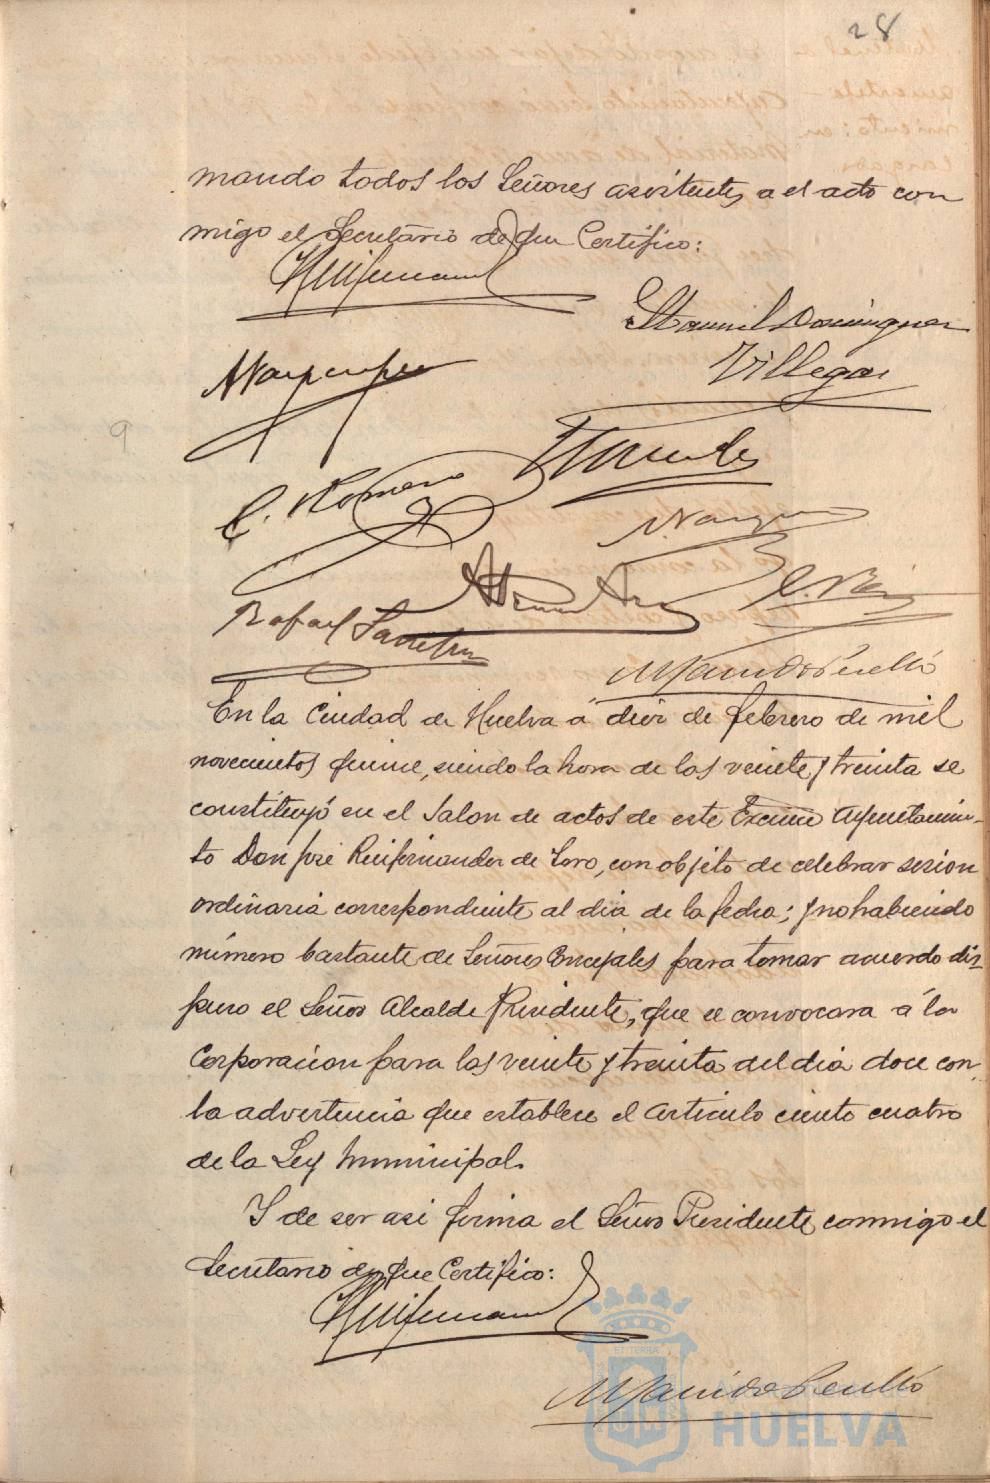 28
mando todos los Señores asistentes a el acto con
migo el Secretario de que Certifico:
Manuel Dominguez
Villegas
C. Romero
Rafael
En la Ciudad de Huelva á diez de febrero de mil
novecientos quince, siendo la hora de las veinte y treinta se
constituyó en el Salon de actos de este Excmo Ayuntamien-
to Don José Ruifernandez de Toro, con objeto de celebrar sesion
ordinaria correspondiente al dia de la fecha; y no habiendo
número bastante de Señores Concejales para tomar acuerdo dis-
puso el Señor Alcalde Presidente, que se convocara á la
Corporacion para las veinte y treinta del dia doce con
la advertencia que establece el articulo ciento cuatro
de la Ley Municipal.
Y de ser asi firma el Señor Presidente conmigo el
Secretario de que Certifico:
HUELVA